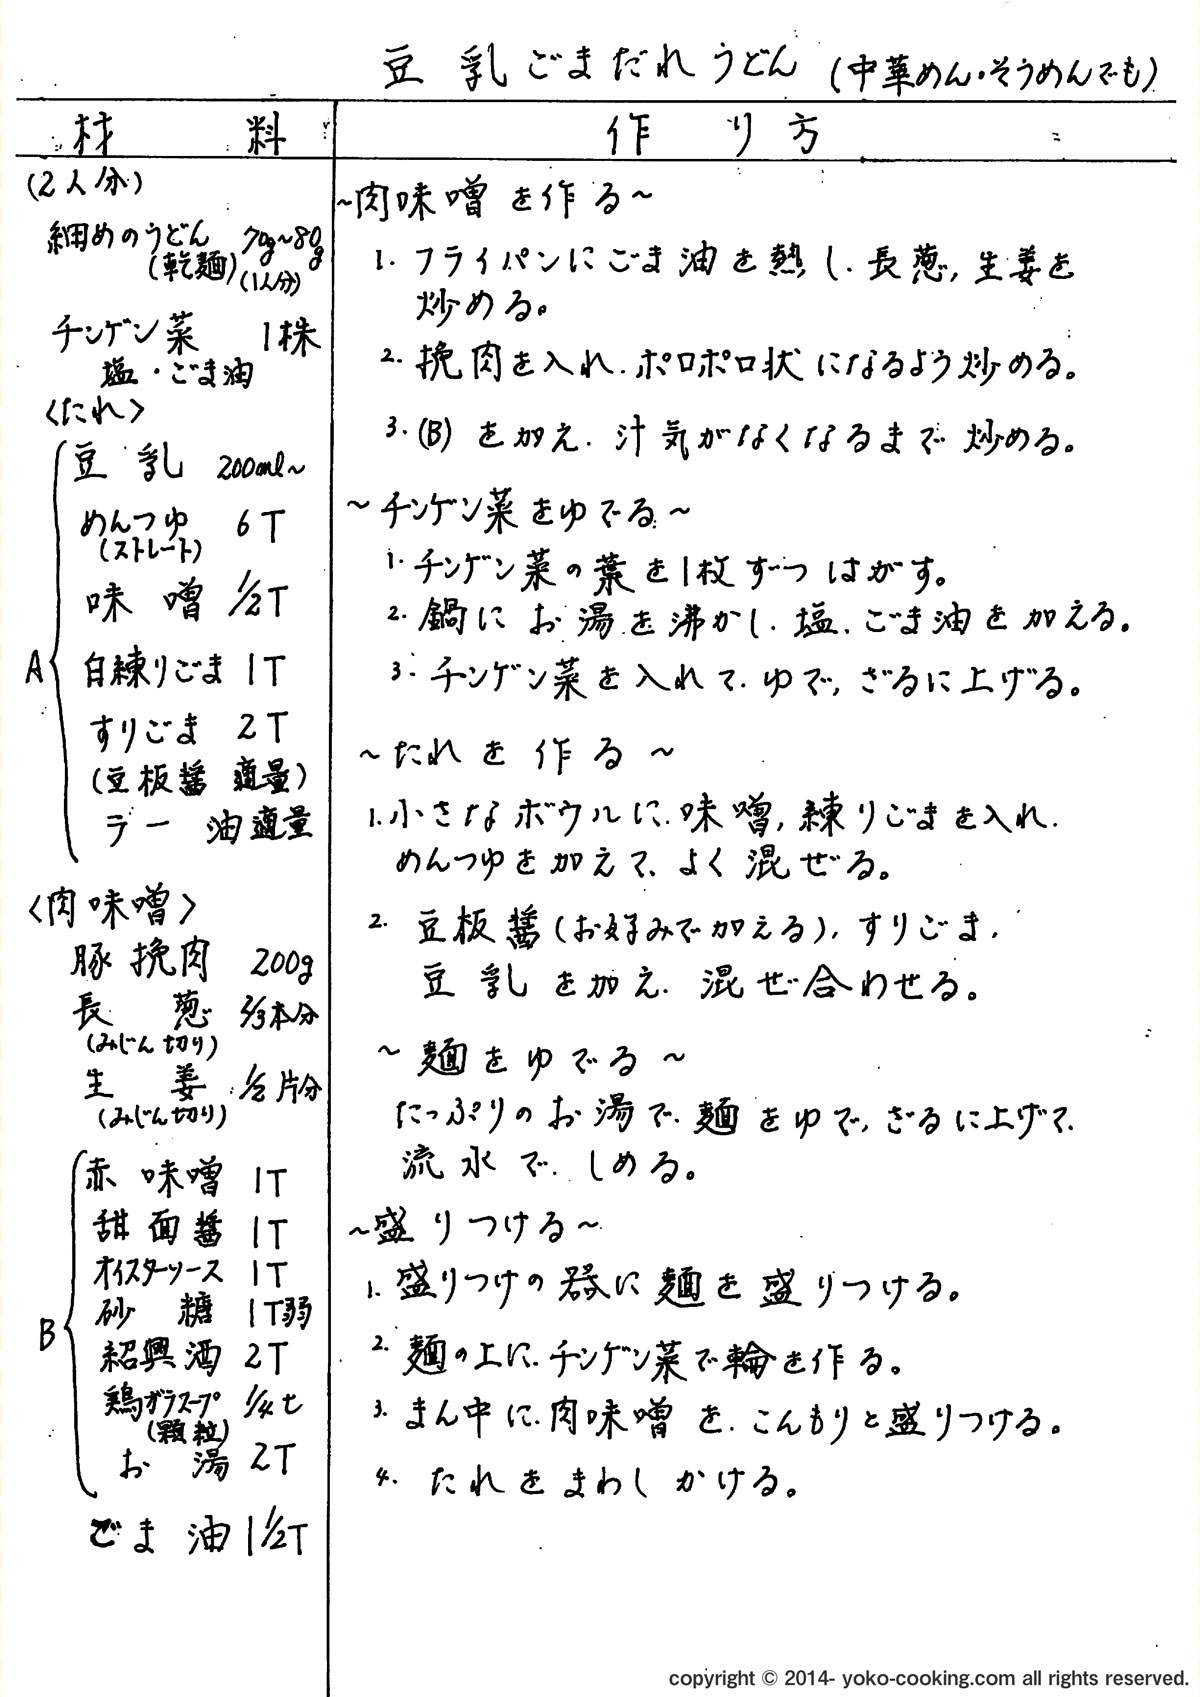 豆乳ごまだれうどん (中華めん・そうめんでも)
材料
作り方
(2人分)
細めのうどん 70g~80g
(乾麺)(1人分)
チンゲン菜 1株
塩・ごま油
〈たれ〉
A
豆乳 200ml~
めんつゆ 6T
(ストレート)
味噌 1/2T
白練りごま 1T
すりごま 2T
(豆板醤 適量)
ラー油 適量
〈肉味噌〉
豚挽肉 200g
長葱 2/3本分
(みじん切り)
生姜 1/2片分
(みじん切り)
B
赤味噌 1T
甜面醤 1T
オイスターソース 1T
砂糖 1T弱
紹興酒 2T
鶏ガラスープ 1/4t
(顆粒)
お湯 2T
ごま油 1 1/2T
~肉味噌を作る~
1. フライパンにごま油を熱し、長葱、生姜を
炒める。
2. 挽肉を入れ、ポロポロ状になるよう炒める。
3. (B)を加え、汁気がなくなるまで炒める。
~チンゲン菜をゆでる~
1. チンゲン菜の葉を1枚ずつはがす。
2. 鍋にお湯を沸かし、塩、ごま油を加える。
3. チンゲン菜を入れて、ゆで、ざるに上げる。
~たれを作る~
1. 小さなボウルに、味噌、練りごまを入れ、
めんつゆを加えて、よく混ぜる。
2. 豆板醤(お好みで加える)、すりごま、
豆乳を加え、混ぜ合わせる。
~麺をゆでる~
たっぷりのお湯で、麺をゆで、ざるに上げて、
流水で、しめる。
~盛りつける~
1. 盛りつけの器に麺を盛りつける。
2. 麺の上に、チンゲン菜で輪を作る。
3. まん中に、肉味噌を、こんもりと盛りつける。
4. たれをまわしかける。
copyright © 2014- yoko-cooking.com all rights reserved.